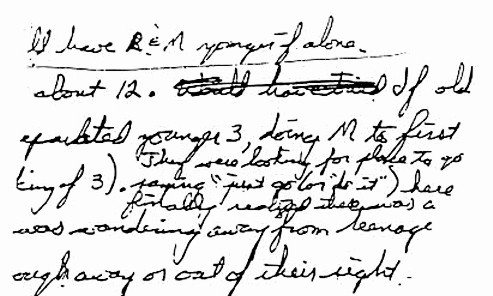 have R & M younger if alone.
about 12. If old
younger 3, doing M to first
They were looking for place to go
king of 3). saying "just go do it") have
finally realized there was a
was wandering away from teenage
ough away or out of their sight.